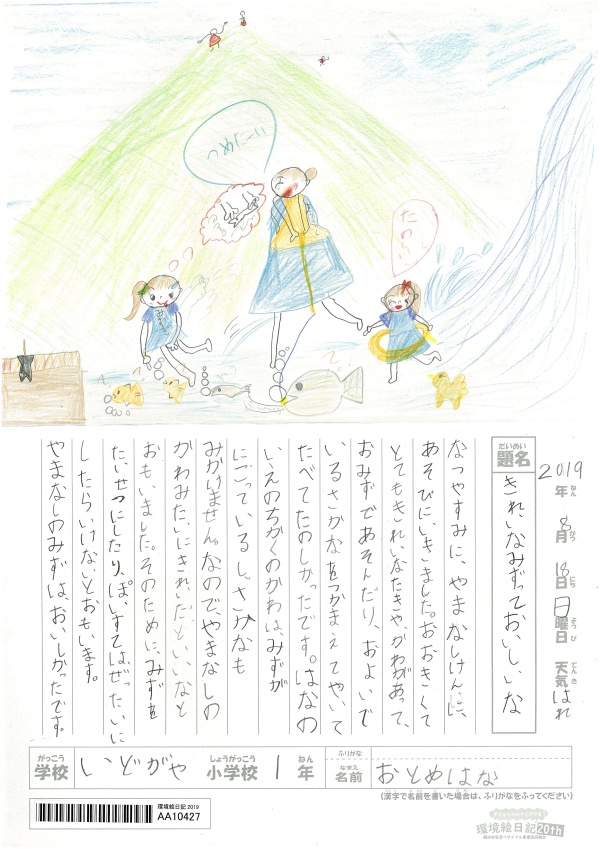 つめたーい
たのしい
2019年 8月 18日 日曜日 天気 はれ
ねん がつ にち ようび てんき
だいめい
題名
きれいなみずっておいしいな
なつやすみに、やまなしけんに、
あそびにいきました。おおきくて
とてもきれいなたきや、かわがあって、
おみずであそんだり、およいで
いるさかなをつかまえてやいて
たべてたのしかったです。はなの
いえのちかくのかわは、みずが
にごっているしざかなも
みかけません。なので、やまなしの
かわみたいにきれいだといいなと
おもいました。そのために、みずを
たいせつにしたり、ぽいすてはぜったいに
したらいけないとおもいます。
やまなしのみずは、おいしかったです。
がっこう
学校
いどがや
しょうがっこう
小学校
1
ねん
年
ふりがな
なまえ
名前
おとめはな
(漢字で名前を書いた場合は、ふりがなをふってください)
環境絵日記 2019
AA10427
環境絵日記20th